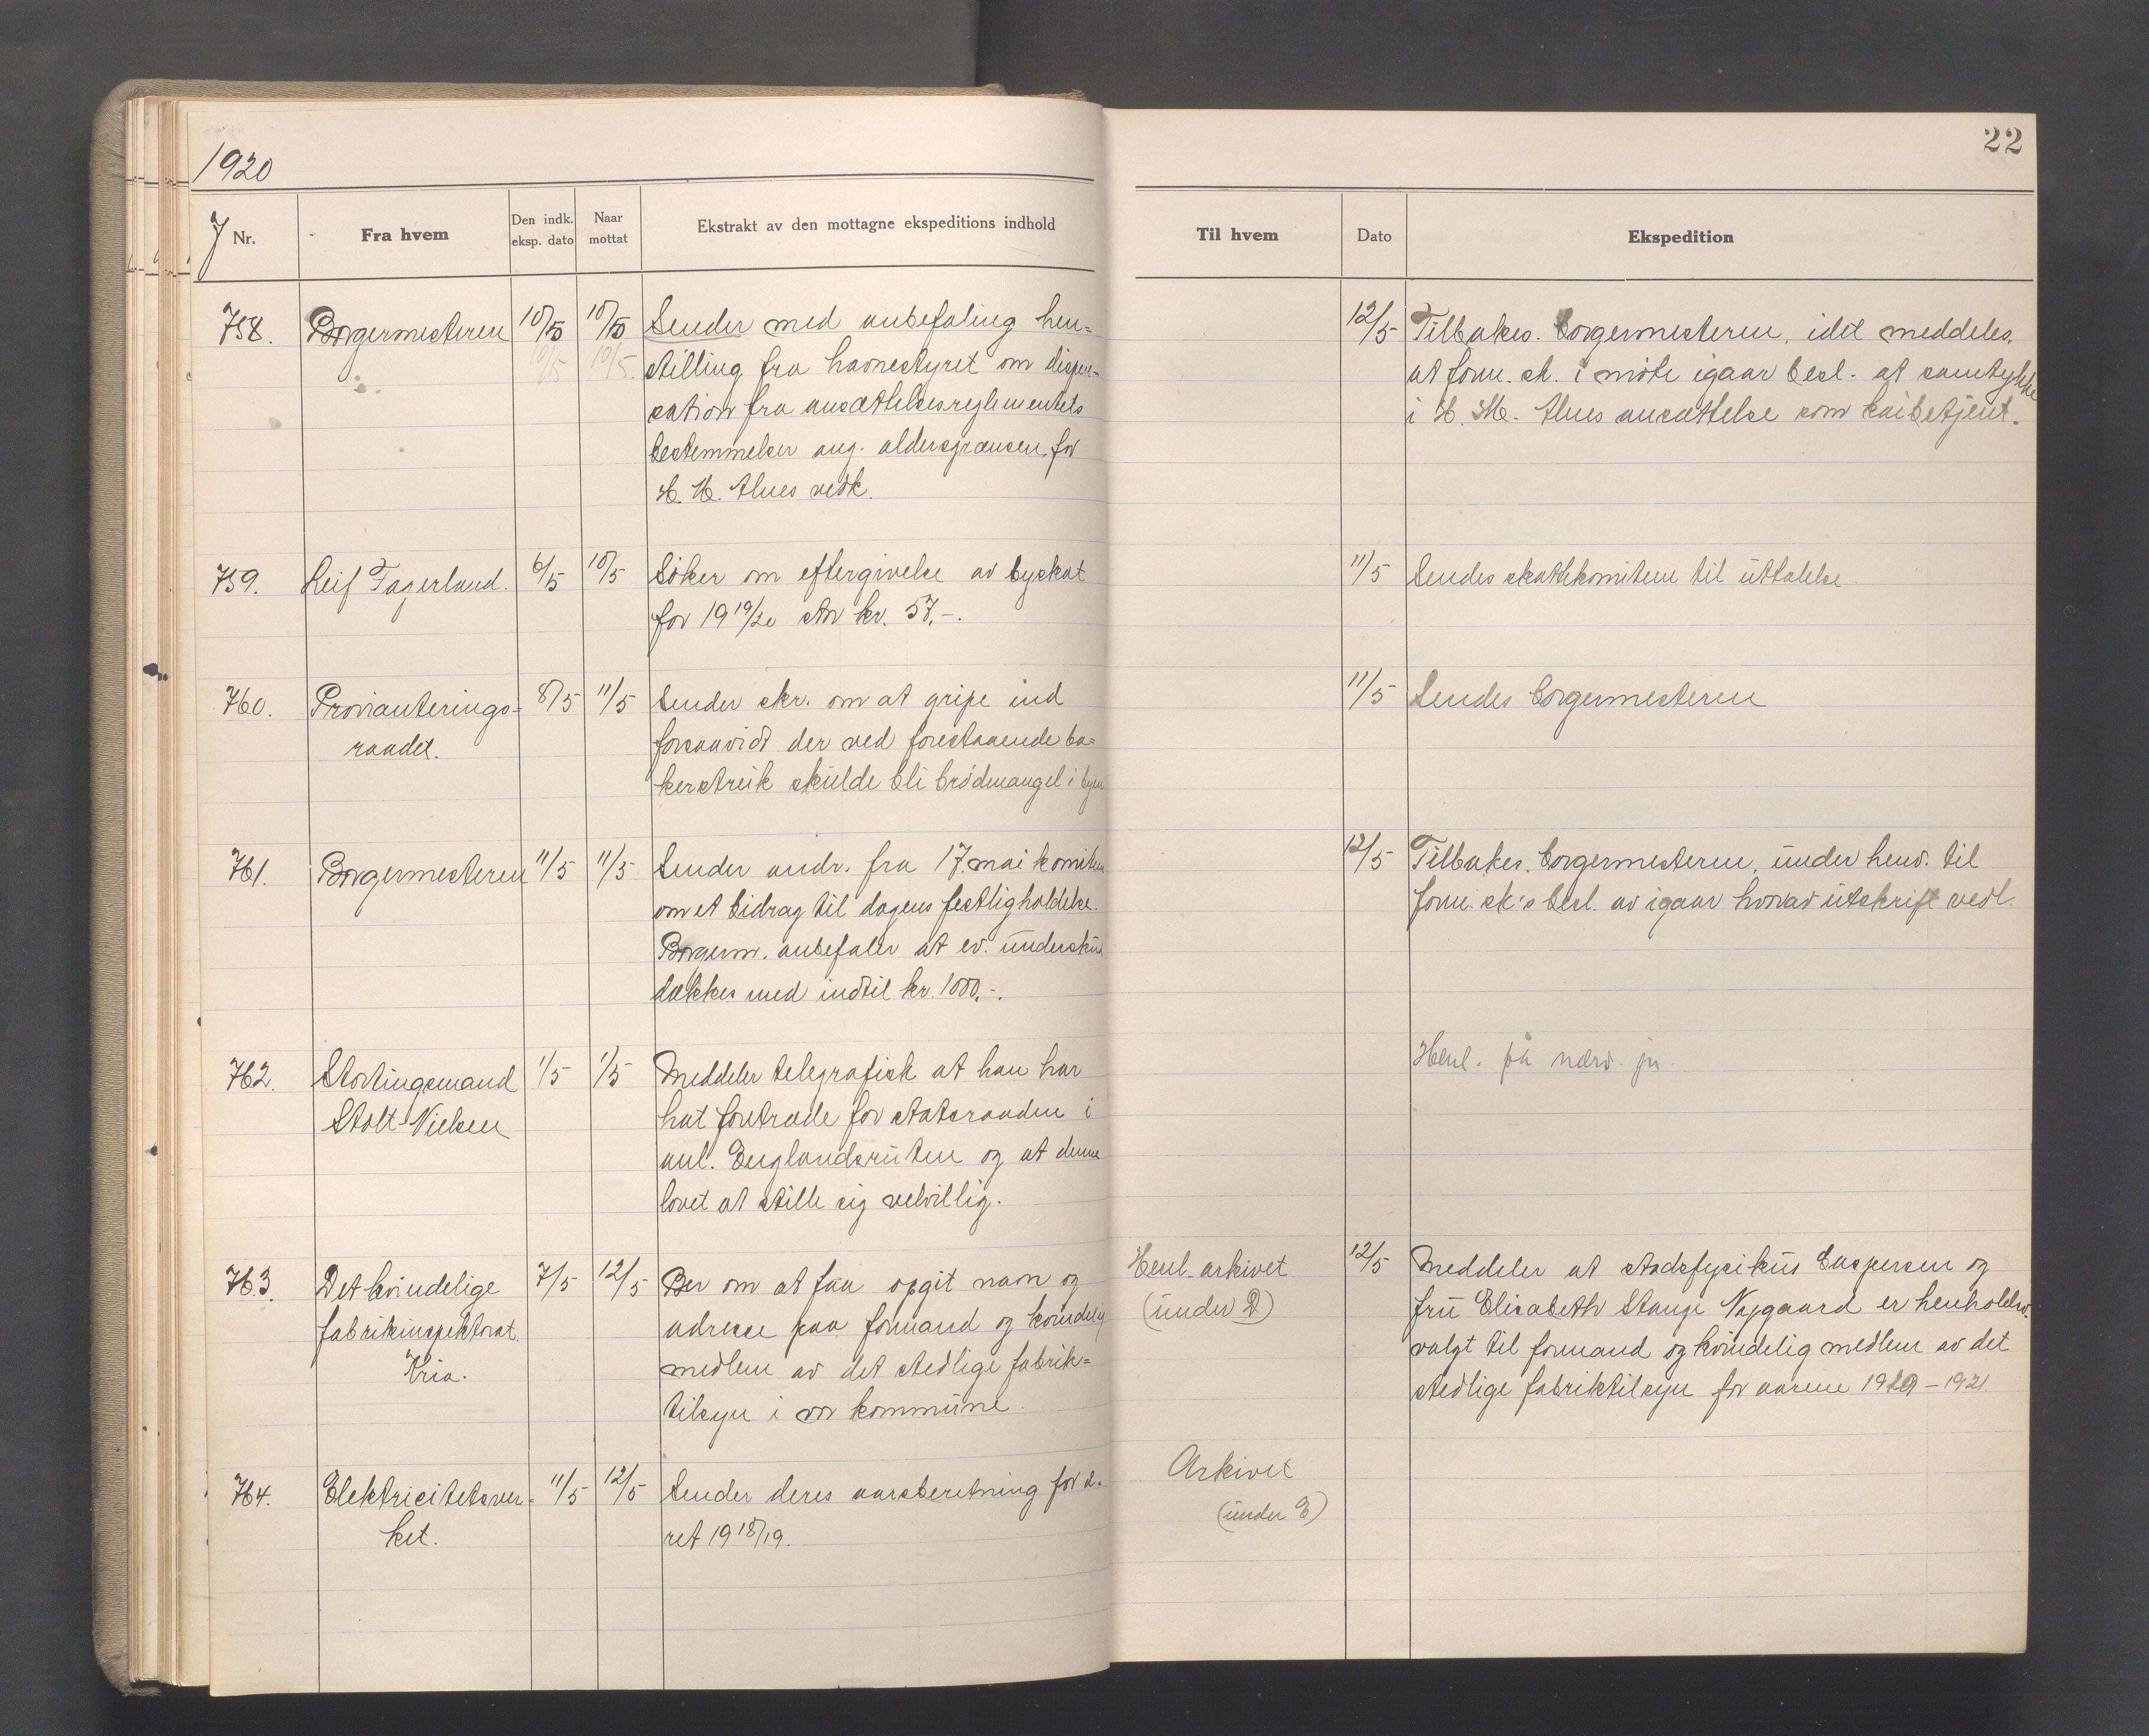 1920
22
J Nr.
Fra hvem
Den indk. eksp. dato
Naar mottat
Ekstrakt av den mottagne ekspeditions indhold
Til hvem
Dato
Ekspedition
758. Borgermesteren 10/5 10/5 Sender med anbefaling hen=
10/5 10/5. stilling fra havnestyret om dispen-
sation fra ansættelsesreglementets
bestemmelser ang. aldersgrænsen for
H. M. Alnes vedk.
12/5 Tilbakes. borgermesteren, idet meddeles,
at form. sk. i møte igaar besl. at samtykke
i H. M. Alnes ansættelse som kaibetjent.
759. Leif Fagerland. 6/5 10/5 Søker om eftergivelse av byskat
for 1919/20 stor kr. 57,-.
11/5 Sendes skattekomiteen til uttalelse
760. Provianterings= 8/5 11/5 Sender skr. om at gripe ind
raadet. forsaavidt der ved forestaaende ba=
kerstreik skulde bli brødmangel i byen
11/5 Sendes borgermesteren
761. Borgermesteren 11/5 11/5 Sender andr. fra 17. mai komiteen
om et bidrag til dagens festligholdelse.
Borgerm. anbefaler at ev. undersku
dækkes med indtil kr. 1000,-.
12/5 Tilbakes. borgermesteren, under henv. til
form. sk's besl. av igaar hvorav utskrift vedl.
762. Stortingsmand 1/5 1/5 Meddeler telegrafisk at han har
Stolt-Nielsen hat foretræde for statsraaden i
anl. Englandsruten og at denne
lovet at stille sig velvillig.
Henl. på nærv. jn.
763. Det kvindelige 7/5 12/5 Ber om at faa opgit navn og
fabrikinspektorat. adresse paa formand og kvindelig
Kria. medlem av det stedlige fabrik=
tilsyn i vor kommune.
Henl. arkivet 12/5 Meddeler at stadsfysikus Caspersen og
(under D) fru Elisabeth Stange Nygaard er henholdsv.
valgt til formand og kvindelig medlem av det
stedlige fabriktilsyn for aarene 1920-1921
764. Elektricitetsver= 11/5 12/5 Sender deres aarsberetning for aa-
ket. ret 1918/19.
Arkivet
(under E)